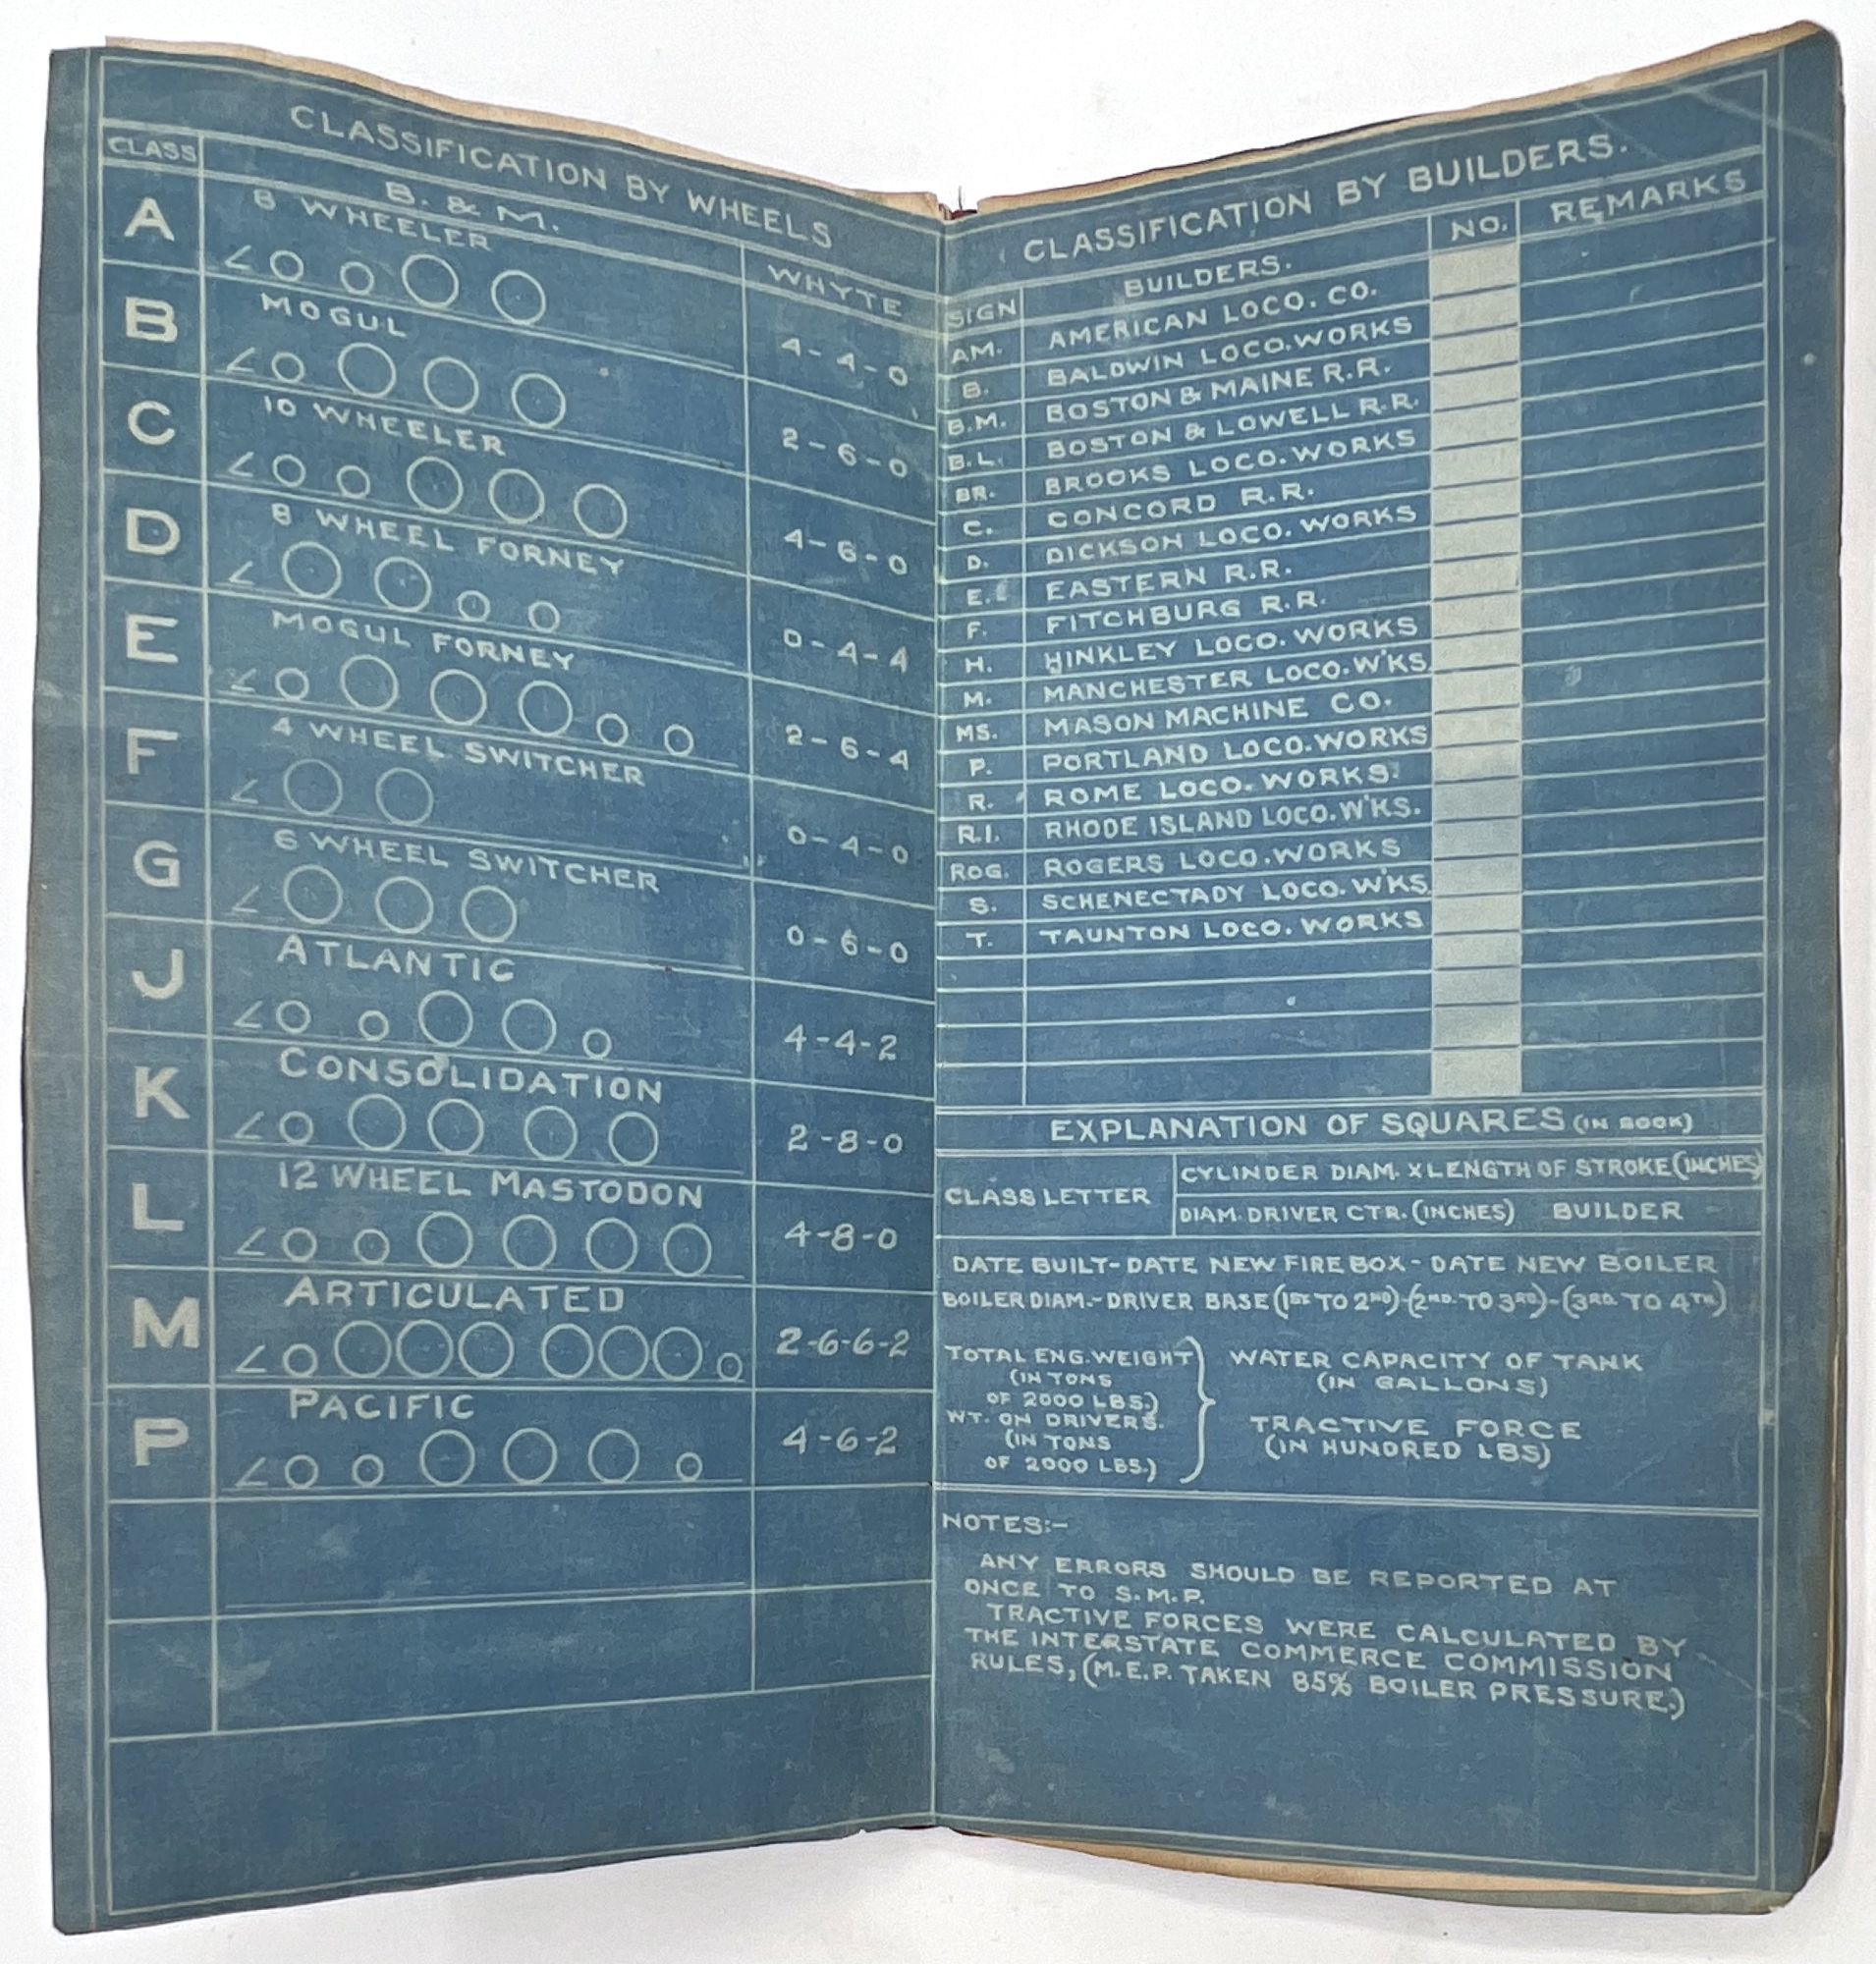 CLASSIFICATION BY WHEELS
CLASS
B. & M.
WHYTE
A
8 WHEELER
4-4-0
B
MOGUL
2-6-0
C
10 WHEELER
4-6-0
D
8 WHEEL FORNEY
0-4-4
E
MOGUL FORNEY
2-6-4
F
4 WHEEL SWITCHER
0-4-0
G
6 WHEEL SWITCHER
0-6-0
J
ATLANTIC
4-4-2
K
CONSOLIDATION
2-8-0
L
12 WHEEL MASTODON
4-8-0
M
ARTICULATED
2-6-6-2
P
PACIFIC
4-6-2
CLASSIFICATION BY BUILDERS.
SIGN BUILDERS. NO. REMARKS
AM. AMERICAN LOCO. CO.
B. BALDWIN LOCO. WORKS
B.M. BOSTON & MAINE R.R.
B.L. BOSTON & LOWELL R.R.
BR. BROOKS LOCO. WORKS
C. CONCORD R.R.
D. DICKSON LOCO. WORKS
E. EASTERN R.R.
F. FITCHBURG R.R.
H. HINKLEY LOCO. WORKS
M. MANCHESTER LOCO. W'KS.
MS. MASON MACHINE CO.
P. PORTLAND LOCO. WORKS
R. ROME LOCO. WORKS.
R.I. RHODE ISLAND LOCO. W'KS.
ROG. ROGERS LOCO. WORKS
S. SCHENECTADY LOCO. W'KS.
T. TAUNTON LOCO. WORKS
EXPLANATION OF SQUARES (IN BOOK)
CLASS LETTER
CYLINDER DIAM. X LENGTH OF STROKE (INCHES)
DIAM. DRIVER CTR. (INCHES) BUILDER
DATE BUILT - DATE NEW FIRE BOX - DATE NEW BOILER
BOILER DIAM. - DRIVER BASE (1ST TO 2ND) - (2ND TO 3RD) - (3RD TO 4TH)
TOTAL ENG. WEIGHT
(IN TONS
OF 2000 LBS.)
WT. ON DRIVERS.
(IN TONS
OF 2000 LBS.)
WATER CAPACITY OF TANK
(IN GALLONS)
TRACTIVE FORCE
(IN HUNDRED LBS)
NOTES:-
ANY ERRORS SHOULD BE REPORTED AT
ONCE TO S.M.P.
TRACTIVE FORCES WERE CALCULATED BY
THE INTERSTATE COMMERCE COMMISSION
RULES, (M.E.P. TAKEN 85% BOILER PRESSURE.)